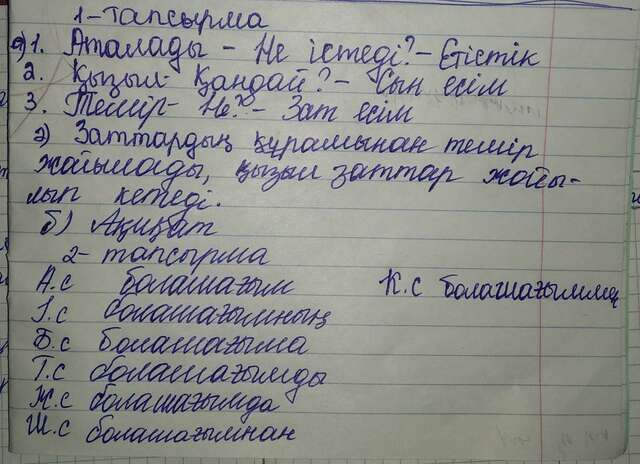 1-тапсырма
а) 1. Аталады - Не істеді? - Етістік
2. Қызыл - Қандай? - Сын есім
3. Темір - Не? - Зат есім
ә) Заттардың құрамынан темір
жайылады, қызыл заттар жайы-
лып кетеді.
б) Ақиқат
2- тапсырма
А.с болашағым К.с болашағыммен
І.с болашағымның
Б.с болашағыма
Т.с болашағымды
Ж.с болашағымда
Ш.с болашағымнан